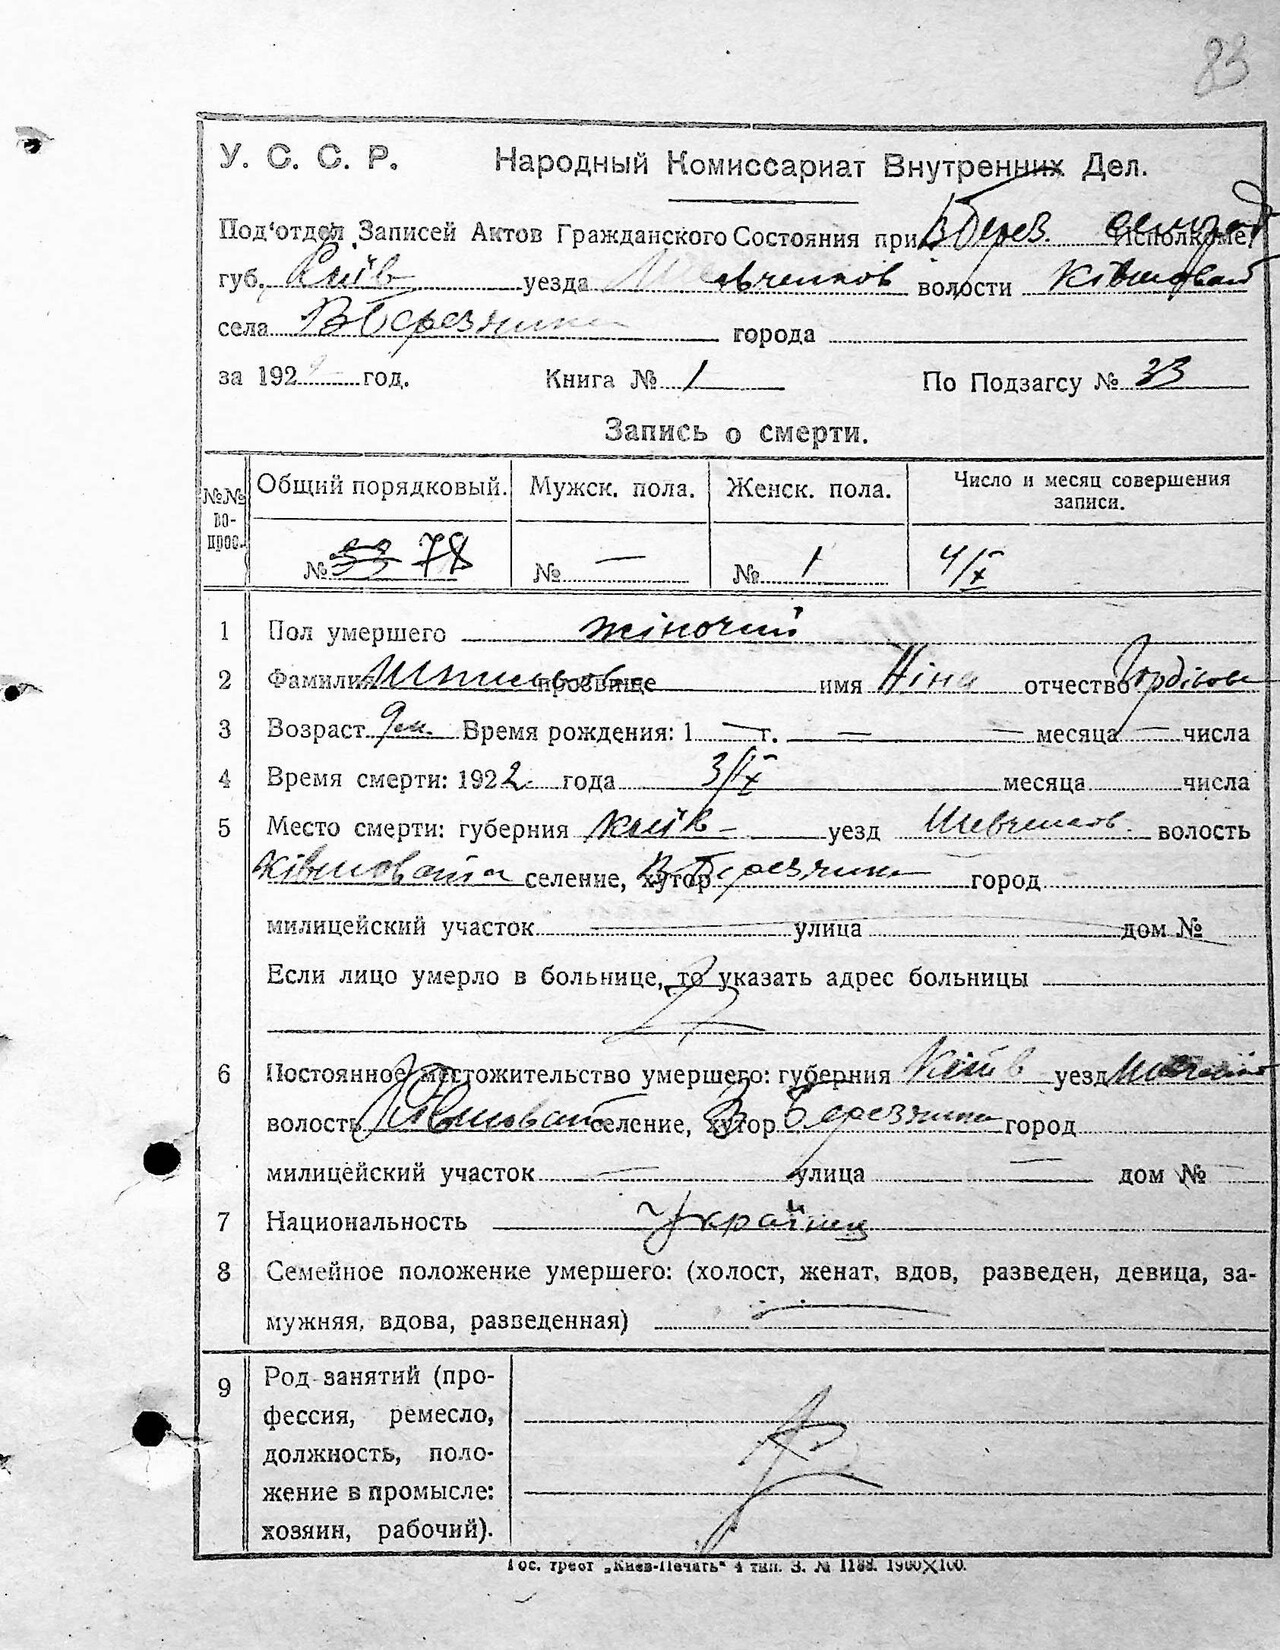 83
У. С. С. Р. Народный Комиссариат Внутренних Дел.
Под'отдел Записей Актов Гражданского Состояния при В Берез. Исполкоме.
губ. Київ уезда Шевченков волости Ківшоват
села В Березянка города
за 192 год. Книга № 1 По Подзагсу № 33
Запись о смерти.
№№ вопрос. Общий порядковый. Мужск. пола. Женск. пола. Число и месяц совершения записи.
№ 33 78 № — № 1 4/IX
1 Пол умершего жіночий
2 Фамилия прозвище имя Ніна отчество Гордіївна
3 Возраст 9 м. Время рождения: 1 — г. — — месяца — числа
4 Время смерти: 1922 года 3/IX месяца числа
5 Место смерти: губерния Київ – уезд Шевченков. волость
Ківшовата селение, хутор В. Березянка город
милицейский участок улица дом №
Если лицо умерло в больнице, то указать адрес больницы
6 Постоянное местожительство умершего: губерния Київ уезд
волость Ківшоват селение, хутор В Березянка город
милицейский участок — улица — дом № —
7 Национальность Україн
8 Семейное положение умершего: (холост, женат, вдов, разведен, девица, за-
мужняя, вдова, разведенная) —
9 Род занятий (про-
фессия, ремесло,
должность, поло-
жение в промысле:
хозяин, рабочий).
Гос. трест „Киев-Печать" 4 тип. З. № 1188. 1900×100.